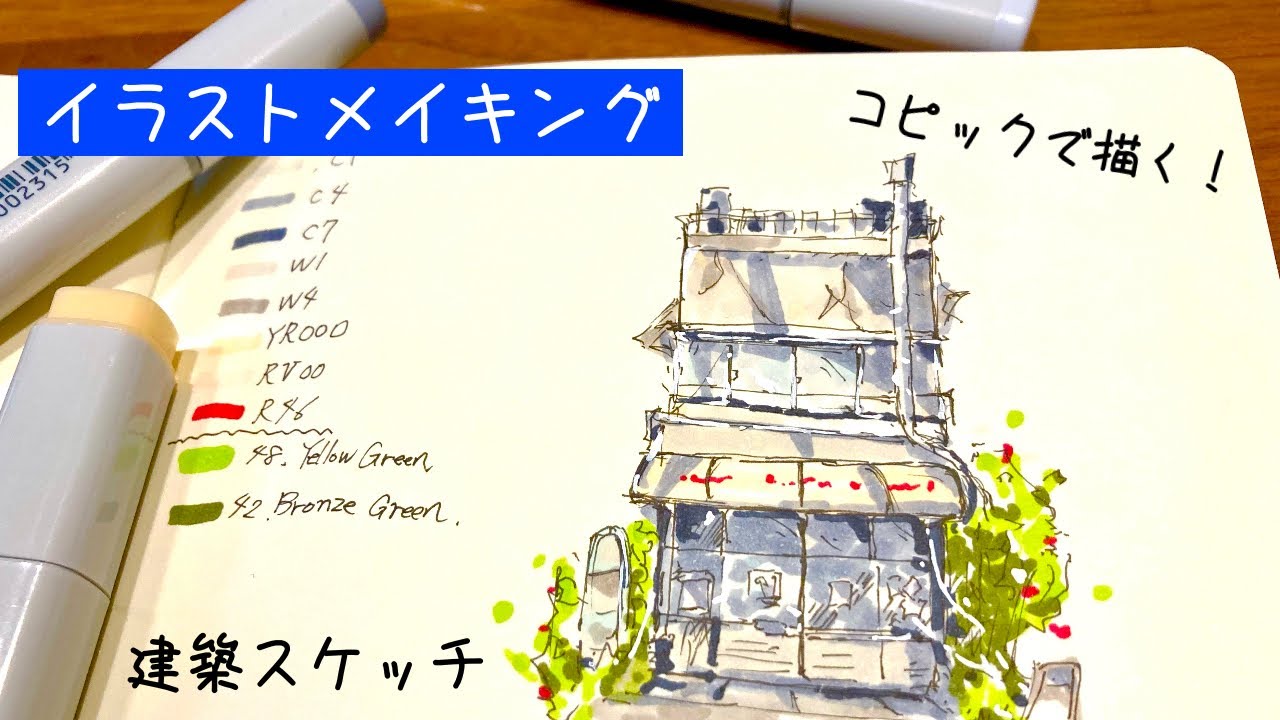 イラストメイキング
コピックで描く!
0002315
C1
C4
C7
W1
W4
YR000
RV00
R46
48. Yellow Green
42. Bronze Green.
建築スケッチ